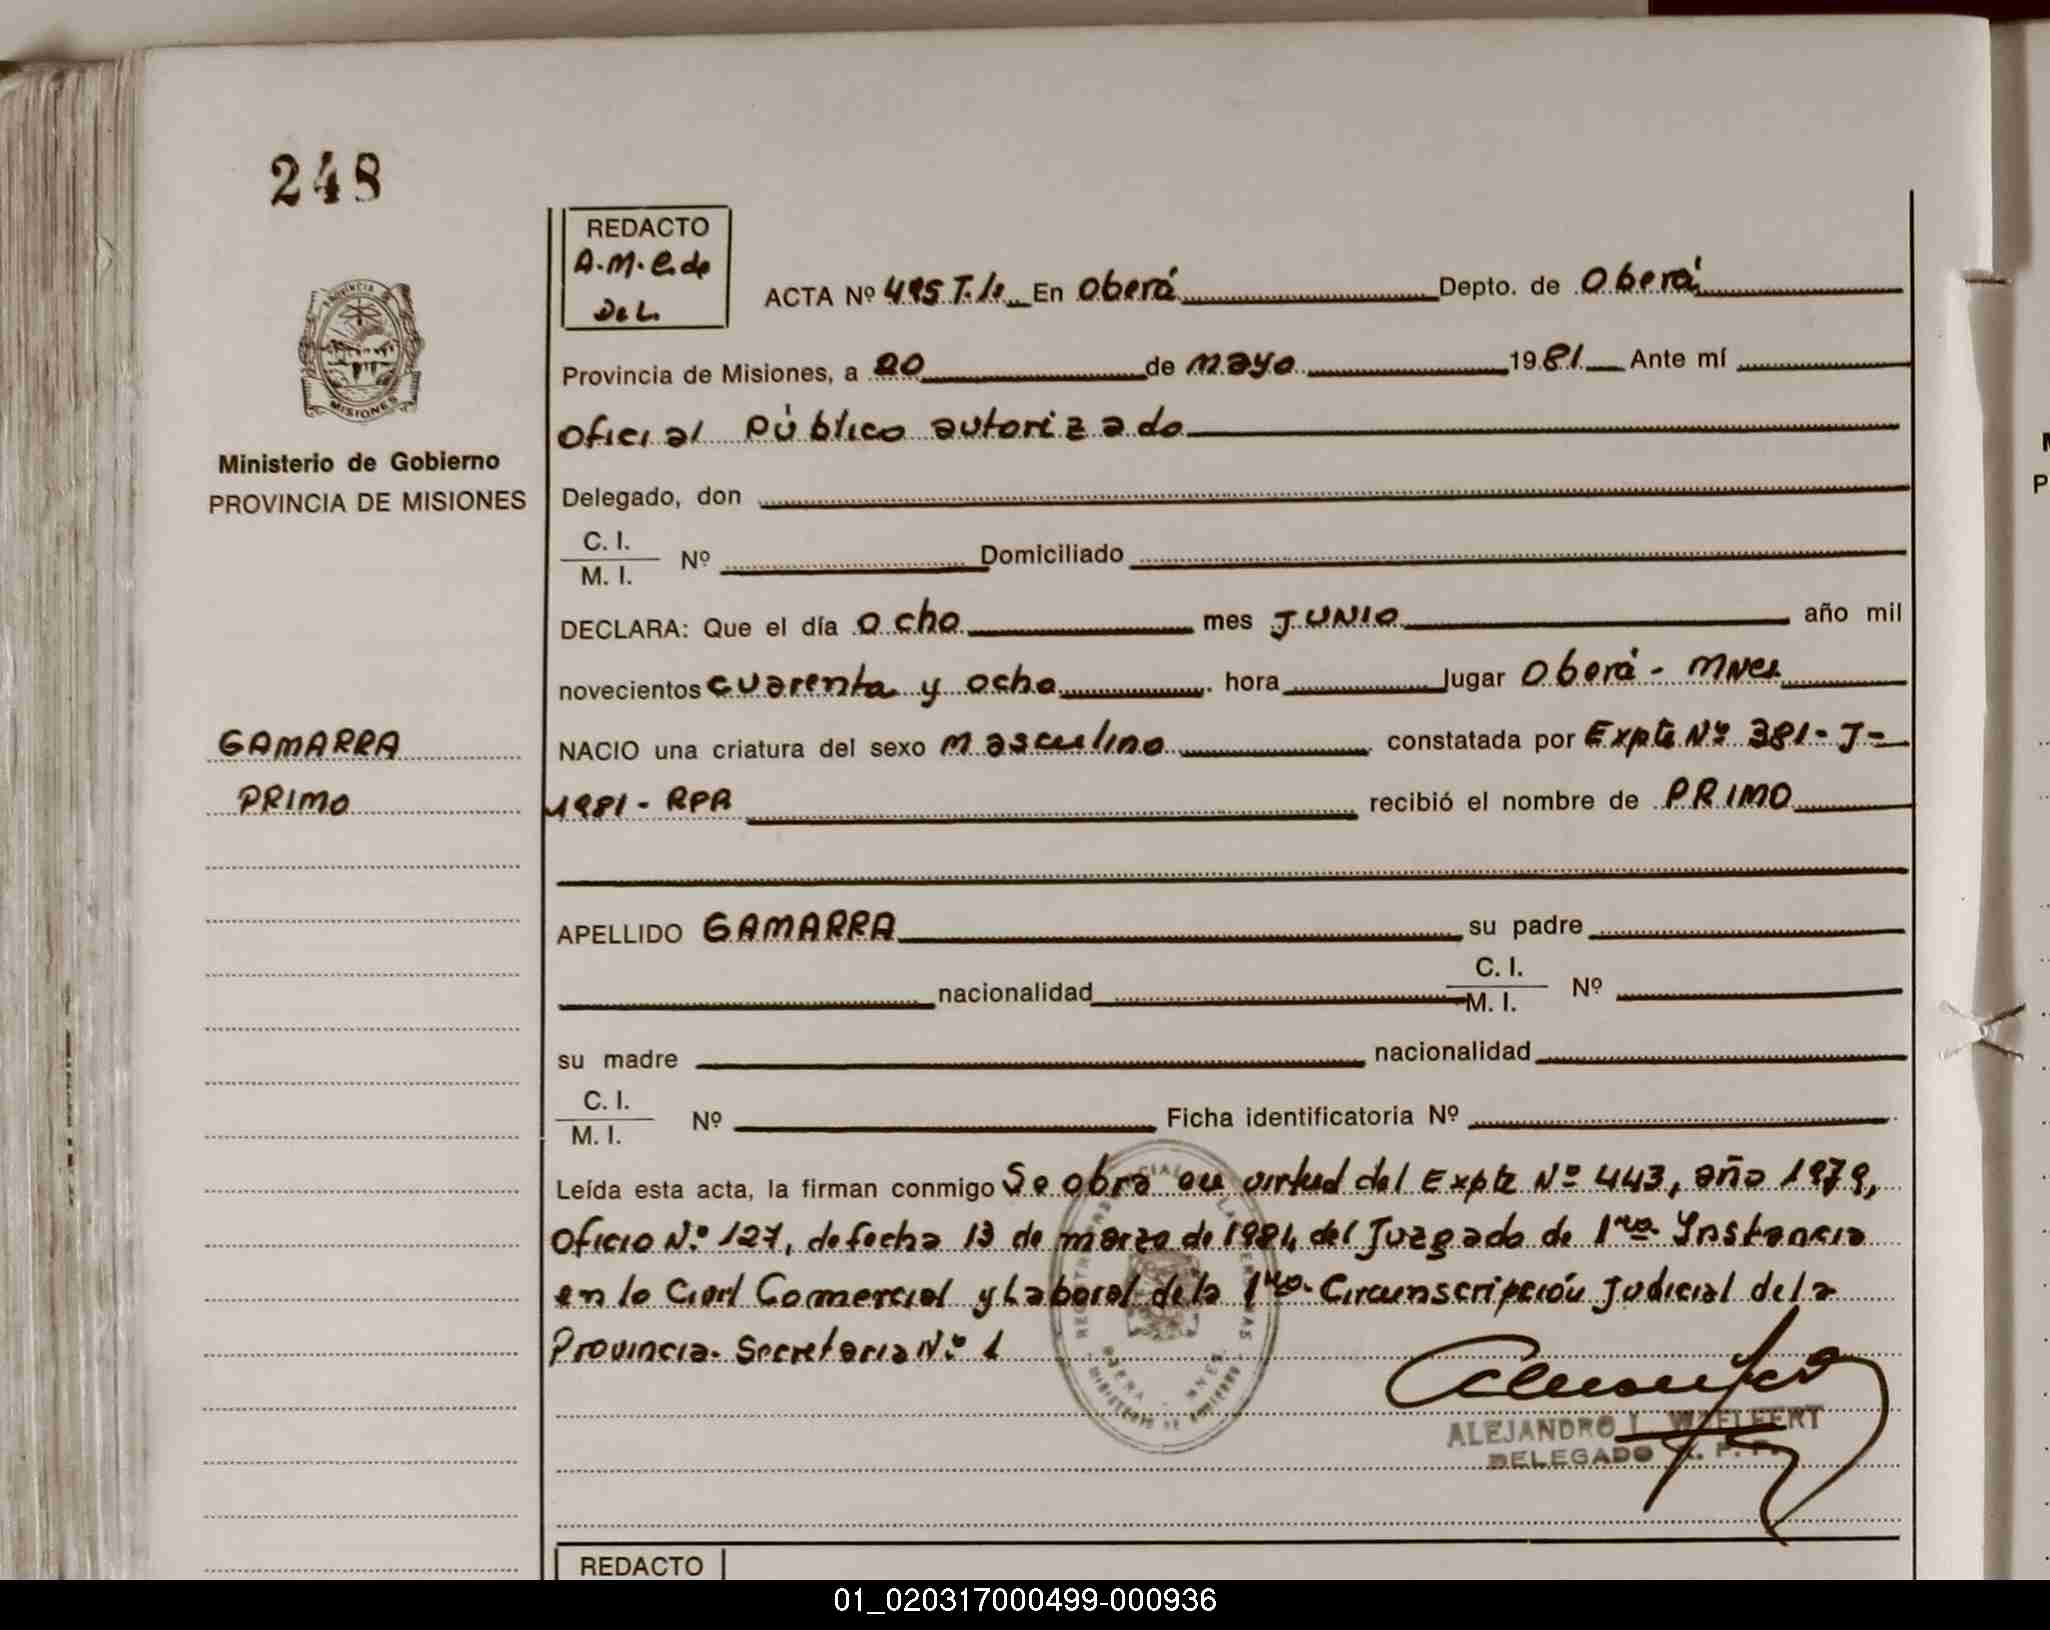 248
REDACTO
A.M.C. de
De L.
ACTA Nº 495 T.Iº En Oberá Depto. de Oberá
Provincia de Misiones, a 20 de mayo 1981 Ante mí
Oficial Público autorizado
Ministerio de Gobierno
PROVINCIA DE MISIONES
Delegado, don
C. I.
M. I. Nº Domiciliado
DECLARA: Que el día ocho mes JUNIO año mil
novecientos cuarenta y ocho hora lugar Oberá - Mnes
GAMARRA
PRIMO
NACIO una criatura del sexo masculino constatada por Expte Nº 381-J-
1981 - RPR recibió el nombre de PRIMO
APELLIDO GAMARRA su padre
nacionalidad C. I. M. I. Nº
su madre nacionalidad
C. I.
M. I. Nº Ficha identificatoria Nº
Leída esta acta, la firman conmigo Se obra en virtud del Expte Nº 443, año 1979,
Oficio Nº 127, de fecha 13 de marzo de 1981, del Juzgado de 1ra. Instancia
en lo Civil Comercial y Laboral de la 1ra. Circunscripción Judicial de la
Provincia. Secretaria Nº 1
ALEJANDRO L. WELFERT
DELEGADO R. P. P.
REDACTO
01_020317000499-000936